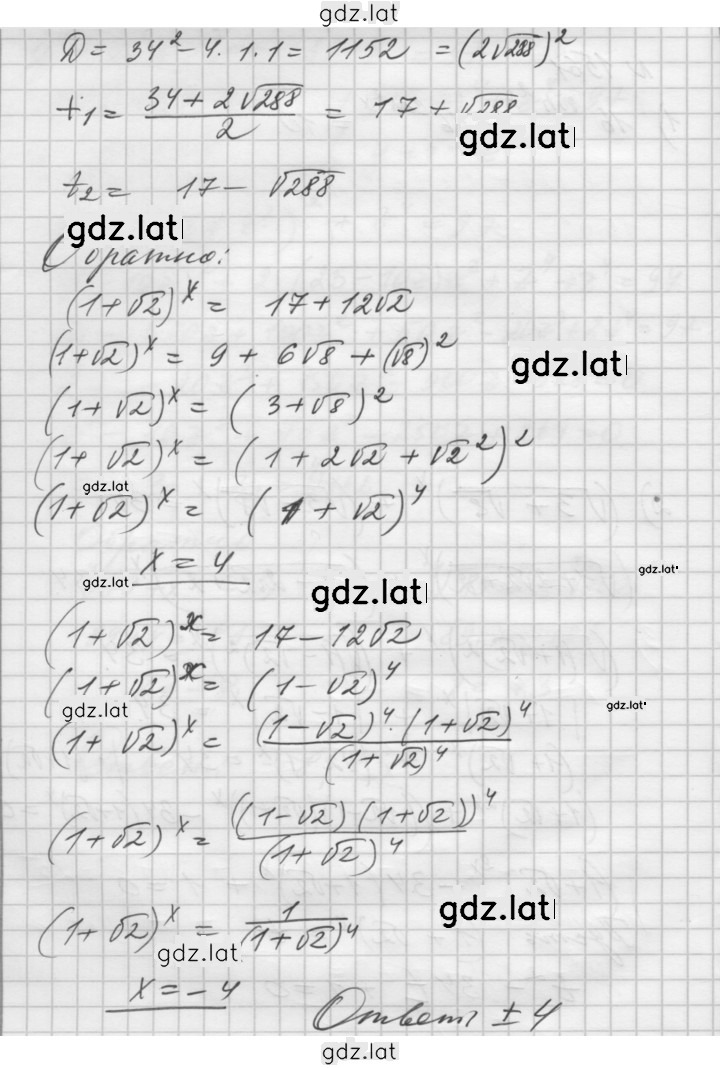 gdz.lat
D = 34² - 4·1·1 = 1152 = (2√288)²
t₁ = (34 + 2√288)/2 = 17 + √288
gdz.lat
t₂ = 17 - √288
gdz.lat
Обратно:
(1+√2)ˣ = 17 + 12√2
(1+√2)ˣ = 9 + 6√8 + (√8)²
gdz.lat
(1+√2)ˣ = (3+√8)²
(1+√2)ˣ = (1 + 2√2 + √2²)²
gdz.lat
(1+√2)ˣ = (1 + √2)⁴
x = 4
gdz.lat
gdz.lat
gdz.lat
(1+√2)ˣ = 17 - 12√2
(1+√2)ˣ = (1-√2)⁴
gdz.lat
gdz.lat
(1+√2)ˣ = (1-√2)⁴·(1+√2)⁴/(1+√2)⁴
(1+√2)ˣ = ((1-√2)(1+√2))⁴/(1+√2)⁴
(1+√2)ˣ = 1/(1+√2)⁴
gdz.lat
gdz.lat
x = -4
Ответ ± 4
gdz.lat